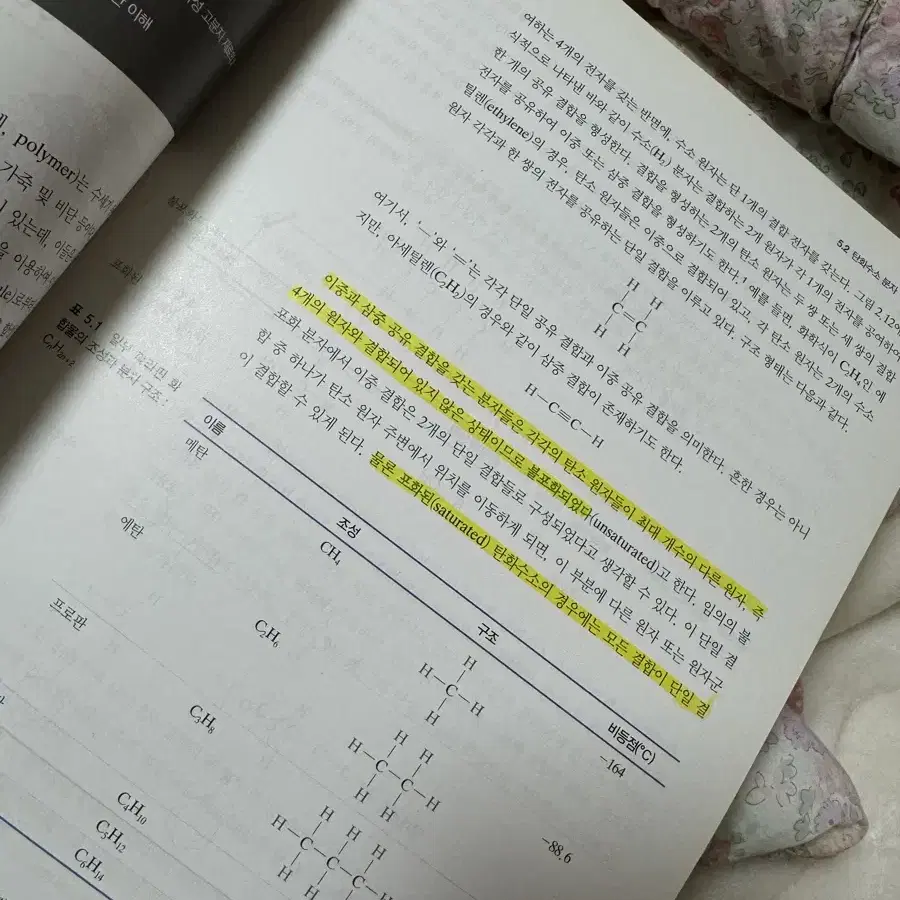 이해
polymer)는
가죽 및 비단
있는데, 이들은
을 이용하여
5.2 탄화수소 분자
여하는 4개의 전자를 갖는 반면에, 수소 원자는 단 1개의 결합 전자를 갖는다. 그림 2.12에
식적으로 나타낸 바와 같이 수소(H₂) 분자는 결합하는 2개 원자가 각 1개의 전자를 공여하여
한 개의 공유 결합을 형성한다. 결합을 형성하는 2개의 탄소 원자는 두 쌍 또는 세 쌍의 결합
전자를 공유하여 이중 또는 삼중 결합을 형성하기도 한다. 예를 들면, 화학식이 C₂H₄인 에
틸렌(ethylene)의 경우, 탄소 원자들은 이중으로 결합되어 있고, 각 탄소 원자는 2개의 수소
원자 각각과 한 쌍의 전자를 공유하는 단일 결합을 이루고 있다. 구조 형태는 다음과 같다.
H H
C=C
H H
여기서, '—'와 '='는 각각 단일 공유 결합과 이중 공유 결합을 의미한다. 흔한 경우는 아니
지만, 아세틸렌(C₂H₂)의 경우와 같이 삼중 결합이 존재하기도 한다.
H—C≡C—H
이중과 삼중 공유 결합을 갖는 분자들은 각각의 탄소 원자들이 최대 개수의 다른 원자, 즉
4개의 원자와 결합되어 있지 않은 상태이므로 불포화되었다(unsaturated)고 한다. 임의의 불
포화 분자에서 이중 결합은 2개의 단일 결합들로 구성되었다고 생각할 수 있다. 이 단일 결
합 중 하나가 탄소 원자 주변에서 위치를 이동하게 되면, 이 부분에 다른 원자 또는 원자군
이 결합할 수 있게 된다. 물론 포화된(saturated) 탄화수소의 경우에는 모든 결합이 단일 결
표 5.1 일부 파라핀 화
합물의 조성과 분자 구조 :
CₙH₂ₙ₊₂
이름 조성 구조 비등점(°C)
메탄 CH₄ −164
H
H—C—H
H
에탄 C₂H₆ −88.6
H H
H—C—C—H
H H
프로판 C₃H₈
H H H
H—C—C—C—H
C₄H₁₀
C₅H₁₂
C₆H₁₄